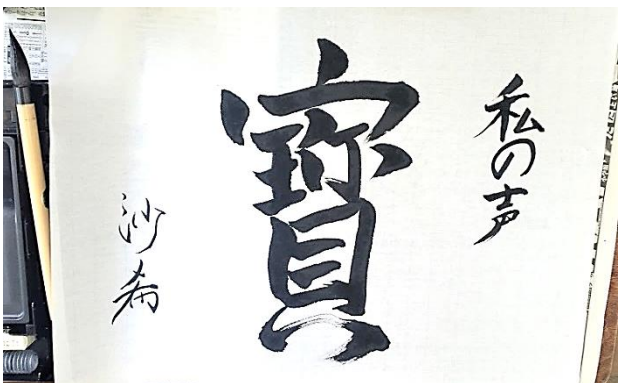 私の声
寳
沙希